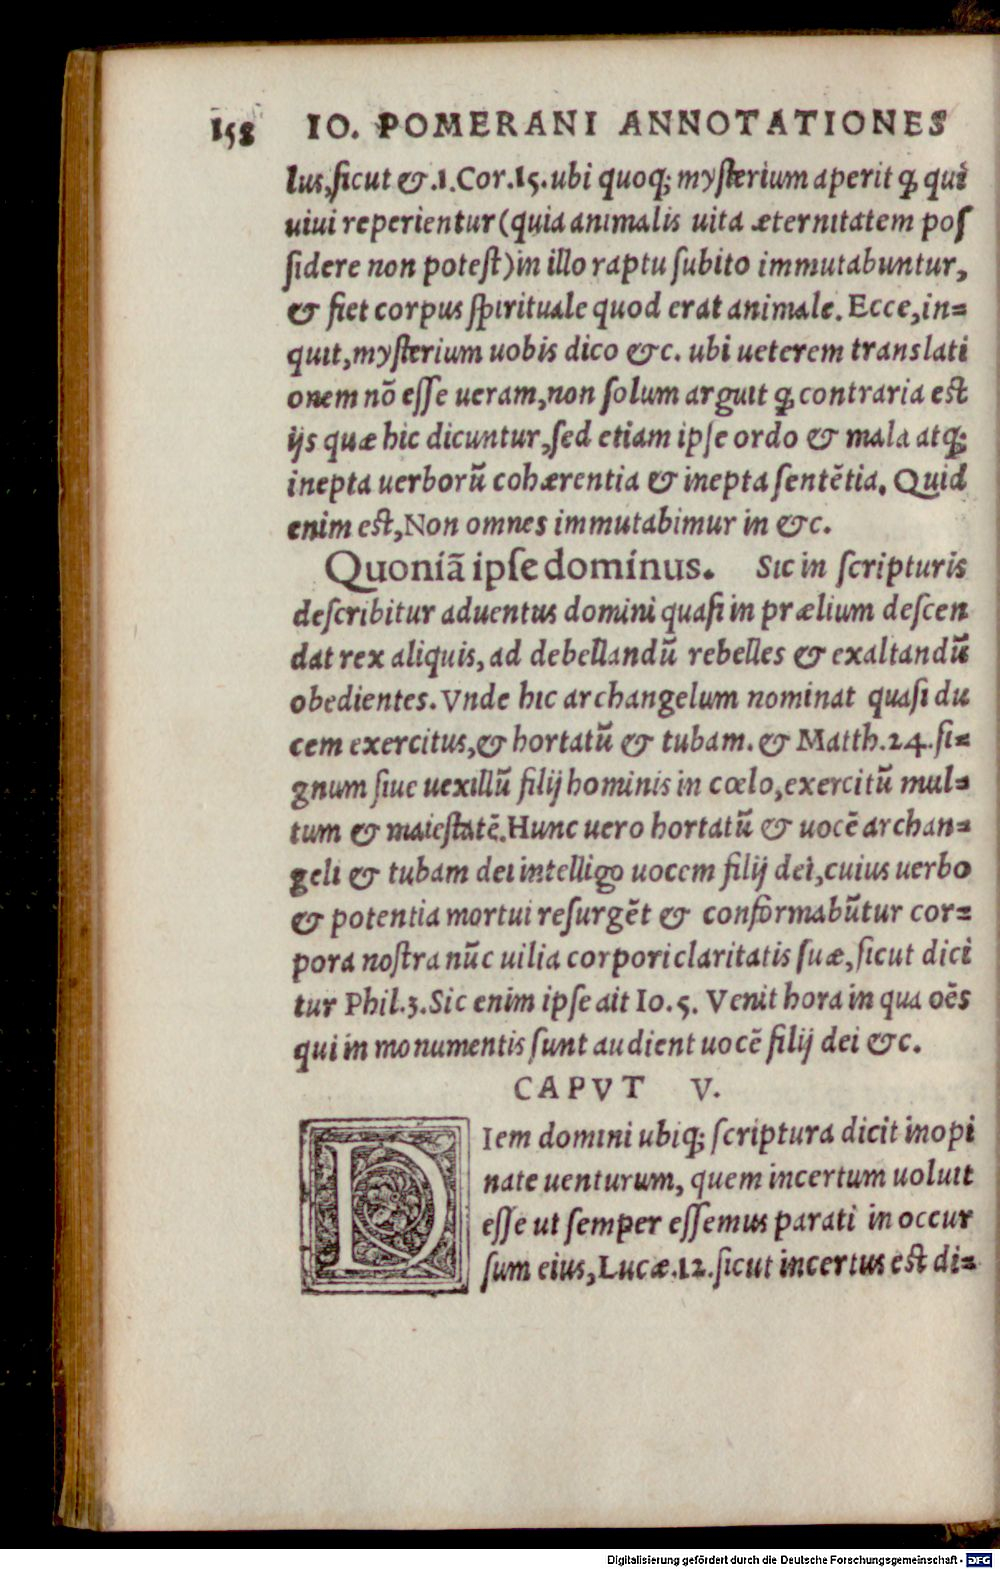 158 IO. POMERANI ANNOTATIONES
lus,ſicut &.1.Cor.15.ubi quoq; myſterium aperit ꝙ qui
uiui reperientur (quia animalis uita æternitatem poſ
ſidere non poteſt) in illo raptu ſubito immutabuntur,
& fiet corpus ſpirituale quod erat animale. Ecce,in=
quit,myſterium uobis dico &c. ubi ueterem translati
onem nõ eſſe ueram,non ſolum arguit ꝙ contraria est
ijs quæ hic dicuntur,ſed etiam ipſe ordo & mala atq;
inepta uerborũ cohærentia & inepta ſentẽtia. Quid
enim est,Non omnes immutabimur in &c.
Quoniã ipſe dominus. Sic in ſcripturis
deſcribitur aduentus domini quaſi in prælium deſcen
dat rex aliquis, ad debellandũ rebelles & exaltandũ
obedientes. Vnde hic archangelum nominat quaſi du
cem exercitus,& hortatũ & tubam. & Matth.24.ſi=
gnum ſiue uexillũ filij hominis in cœlo,exercitũ mul=
tum & maieſtatẽ.Hunc uero hortatũ & uocẽ archan=
geli & tubam dei intelligo uocem filij dei,cuius uerbo
& potentia mortui reſurgẽt & conformabũtur cor=
pora noſtra nũc uilia corpori claritatis ſuæ,ſicut dici
tur Phil.3.Sic enim ipſe ait Io.5. Venit hora in qua oẽs
qui in monumentis ſunt audient uocẽ filij dei &c.
CAPVT V.
DIem domini ubiq; ſcriptura dicit inopi
nate uenturum, quem incertum uoluit
eſſe ut ſemper eſſemus parati in occur
ſum eius,Lucæ.12.ſicut incertus est di=
Digitalisierung gefördert durch die Deutsche Forschungsgemeinschaft - DFG